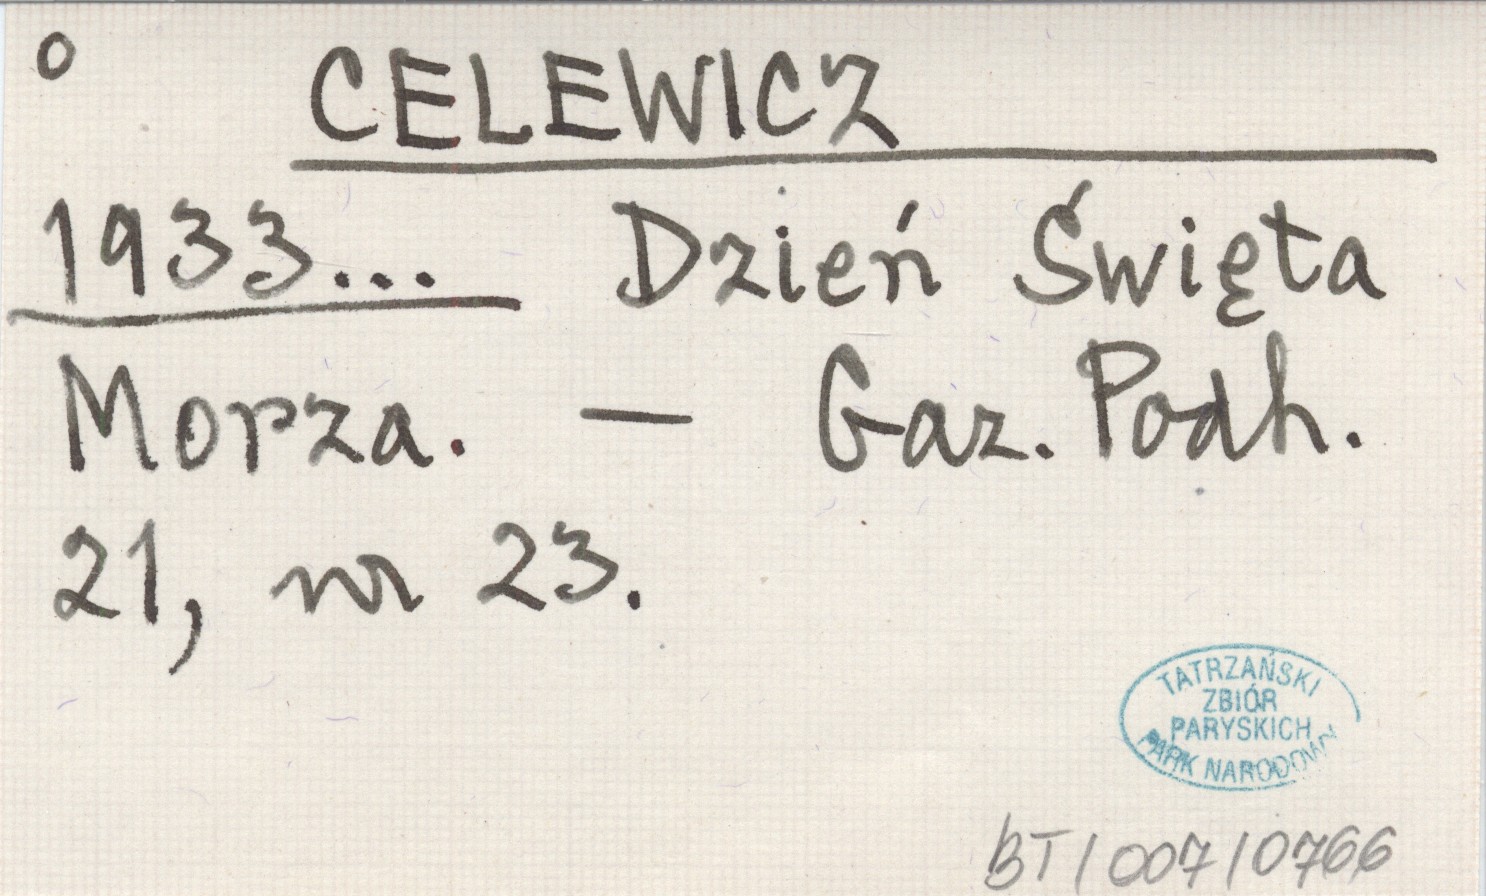 o CELEWICZ
1933... Dzień Święta
Morza. — Gaz. Podh.
21, nr 23.
TATRZAŃSKI
ZBIÓR
PARYSKICH
PARK NARODOWY
BT/007/0766